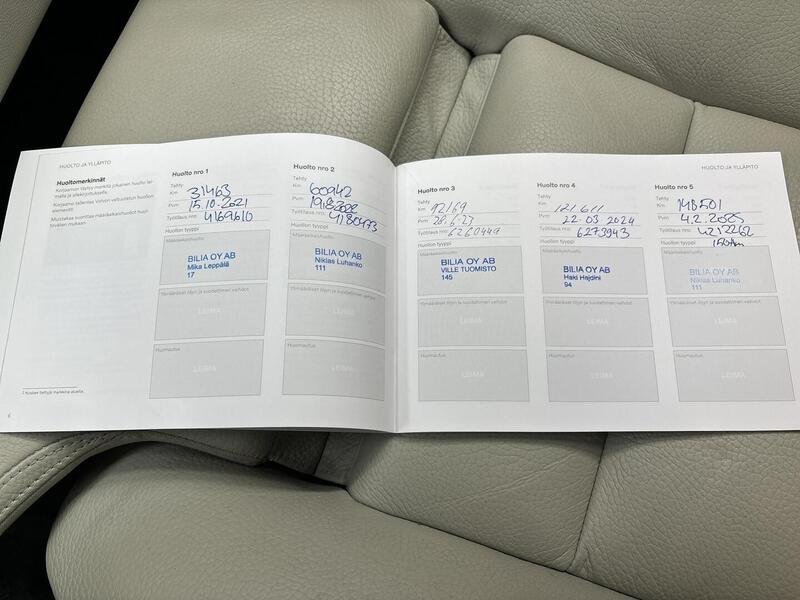 HUOLTO JA YLLÄPITO
Huoltomerkinnät
Huolto nro 1
Tehty
Km 31463
Pvm: 15.10.2021
Työtilaus nro: 4169610
Huollon tyyppi
Määräaikaishuolto
BILIA OY AB
Mika Leppälä
17
Ylimääräiset öljyn ja suodattimen vaihdot
LEIMA
Huomautus
LEIMA
Huolto nro 2
Tehty
Km 60942
Pvm:
Työtilaus nro:
Huollon tyyppi
Määräaikaishuolto
BILIA OY AB
Niklas Luhanko
111
Ylimääräiset öljyn ja suodattimen vaihdot
LEIMA
Huomautus
LEIMA
6
HUOLTO JA YLLÄPITO
Huolto nro 3
Tehty
Km 92169
Pvm
Työtilaus nro: 6260449
Huollon tyyppi
Määräaikaishuolto
BILIA OY AB
VILLE TUOMISTO
145
Ylimääräiset öljyn ja suodattimen vaihdot
LEIMA
Huomautus
LEIMA
Huolto nro 4
Tehty
Km 121 611
Pvm: 22.03.2024
Työtilaus nro: 6273943
Huollon tyyppi
Määräaikaishuolto
BILIA OY AB
Haki Hajdini
94
Ylimääräiset öljyn ja suodattimen vaihdot
LEIMA
Huomautus
LEIMA
Huolto nro 5
Tehty
Km 148501
Pvm: 4.2.2025
Työtilaus nro: 4212262
Huollon tyyppi
Määräaikaishuolto
BILIA OY AB
Niklas Luhanko
111
Ylimääräiset öljyn ja suodattimen vaihdot
LEIMA
Huomautus
LEIMA